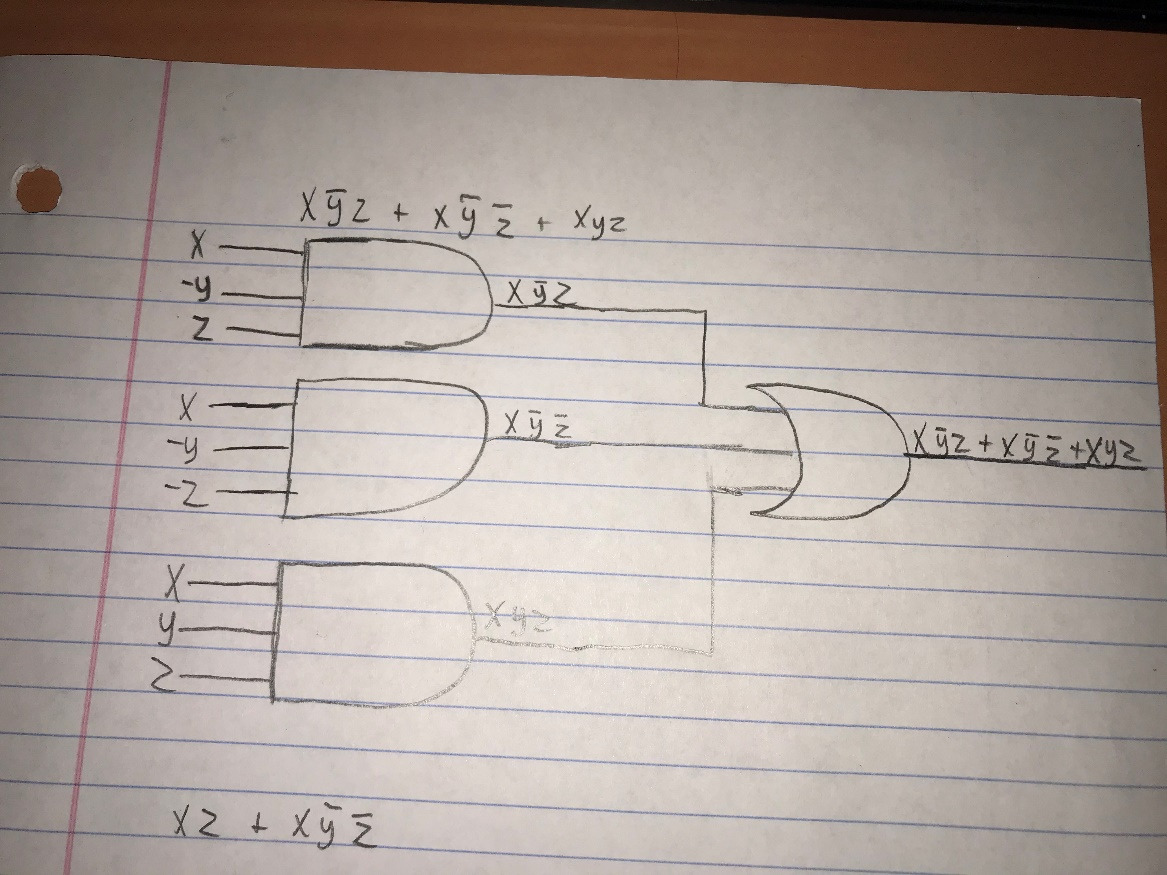 Xȳz + xȳz̄ + Xyz
X
-y
Z
Xȳz
X
-y
-Z
Xȳz̄
Xȳz+xȳz̄+xyz
X
y
Z
Xyz
xz + xȳz̄